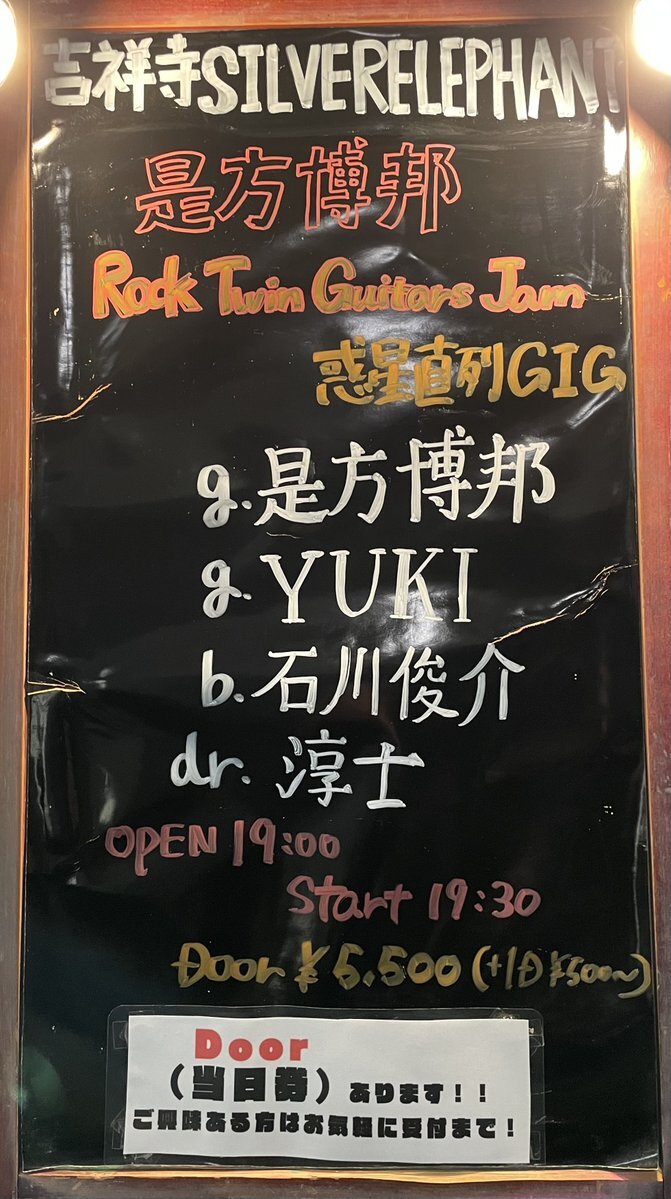 吉祥寺SILVERELEPHANT
是方博邦
Rock Twin Guitars Jam
惑星直列GIG
g.是方博邦
g.YUKI
b.石川俊介
dr.淳士
OPEN 19:00
Start 19:30
Door ¥5,500(+1D ¥500〜)
Door
(当日券)あります!!
ご興味ある方はお気軽に受付まで!